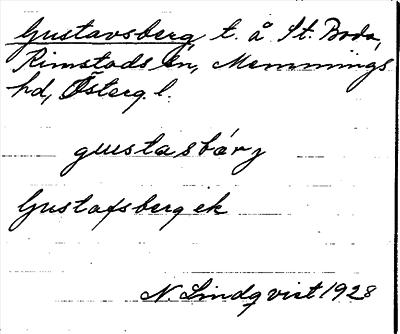 Gustavsberg, t. å St. Boda,
Rimstads sn, Memmings
hd, Österg. l.
gustasbárj
Gustafsberg ek
N. Lindqvist 1928